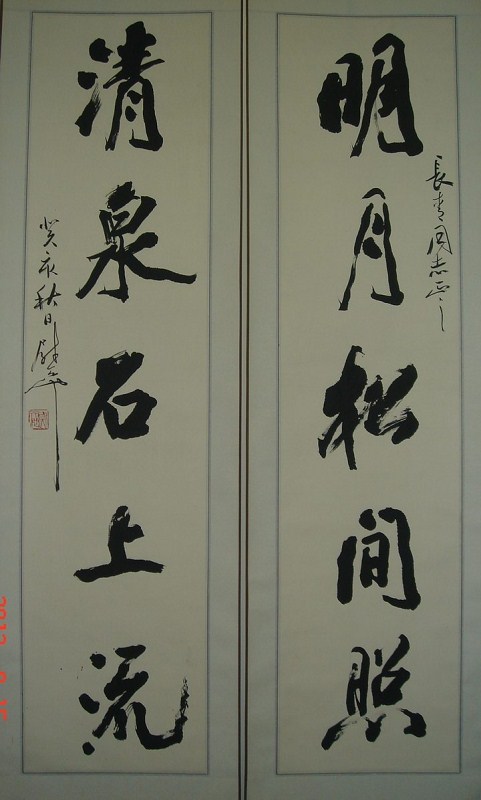 明月松间照
長青同志正之
清泉石上流
癸亥秋日尉天池